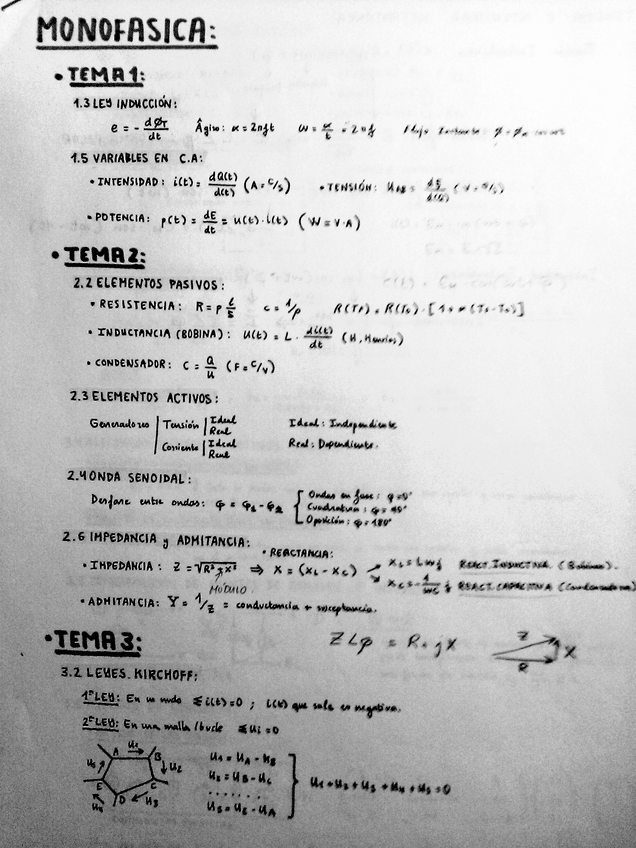 MONOFASICA:
• TEMA 1:
1.3 LEY INDUCCIÓN:
e = - dØT/dt   Âgiro: α = 2πft   ω = α/t = 2πf   Flujo
1.5 VARIABLES EN C.A:
• INTENSIDAD: i(t) = dQ(t)/d(t) (A = C/S)   • TENSIÓN: UAB = dE/d(Q) (V = J/C)
• POTENCIA: p(t) = dE/dt = u(t)·i(t) (W = V·A)
• TEMA 2:
2.2 ELEMENTOS PASIVOS:
• RESISTENCIA: R = ρ l/S   c = 1/ρ   R(TF) = R(T0)·[1+α(TF-T0)]
• INDUCTANCIA (BOBINA): U(t) = L · di(t)/dt (H, Henrios)
• CONDENSADOR: C = Q/U (F = C/V)
2.3 ELEMENTOS ACTIVOS:
Generadores | Tensión | Ideal   Ideal: Independiente
Real
Corriente | Ideal   Real: Dependiente.
Real
2.4 ONDA SENOIDAL:
Desfase entre ondas: φ = φ1 - φ2 { Ondas en fase: φ=0°
Cuadratura: φ = 90°
Oposición: φ = 180°
2.6 IMPEDANCIA y ADMITANCIA:
• REACTANCIA:
• IMPEDANCIA: Z = √R²+X² ⇒ X = (XL - XC)   XL = Lωj REACT. INDUCTIVA (Bobinas).
XC = -1/ωC j REACT. CAPACITIVA (Condensadores)
MÓDULO
• ADMITANCIA: Y = 1/Z = conductancia + susceptancia.
• TEMA 3:   Z∠φ = R+jX   Z X R
3.2 LEYES KIRCHOFF:
1ª LEY: En un nudo Σi(t)=0 ; i(t) que sale es negativa.
2ª LEY: En una malla/bucle Σui = 0
A B C D E U1 U2 U3 U4 U5
U1 = UA - UB
U2 = UB - UC
.......
U5 = UE - UA
} U1 + U2 + U3 + U4 + U5 = 0